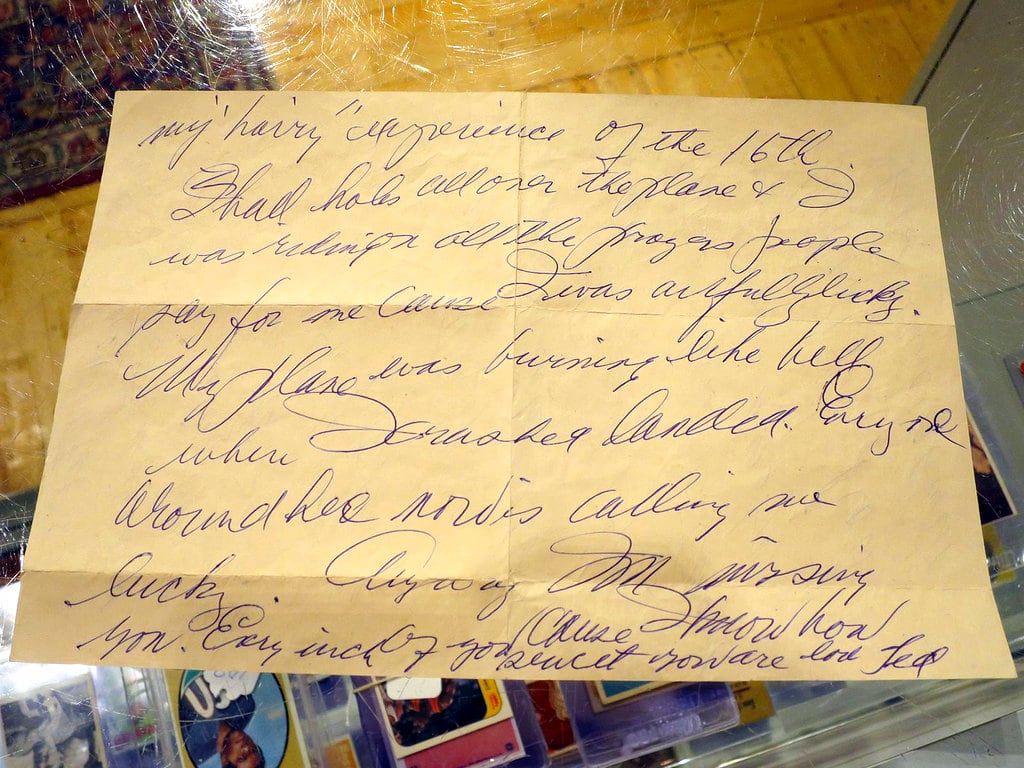 my "hairy" experience of the 16th.
I had holes all over the plane & I
was riding on all the prayers people
say for me cause I was awfully lucky.
My plane was burning like hell
when I crashed landed. Every one
around here now is calling me
lucky. Anyway I'm missing
you. Every inch of you cause I know how
sweet you are love Ted